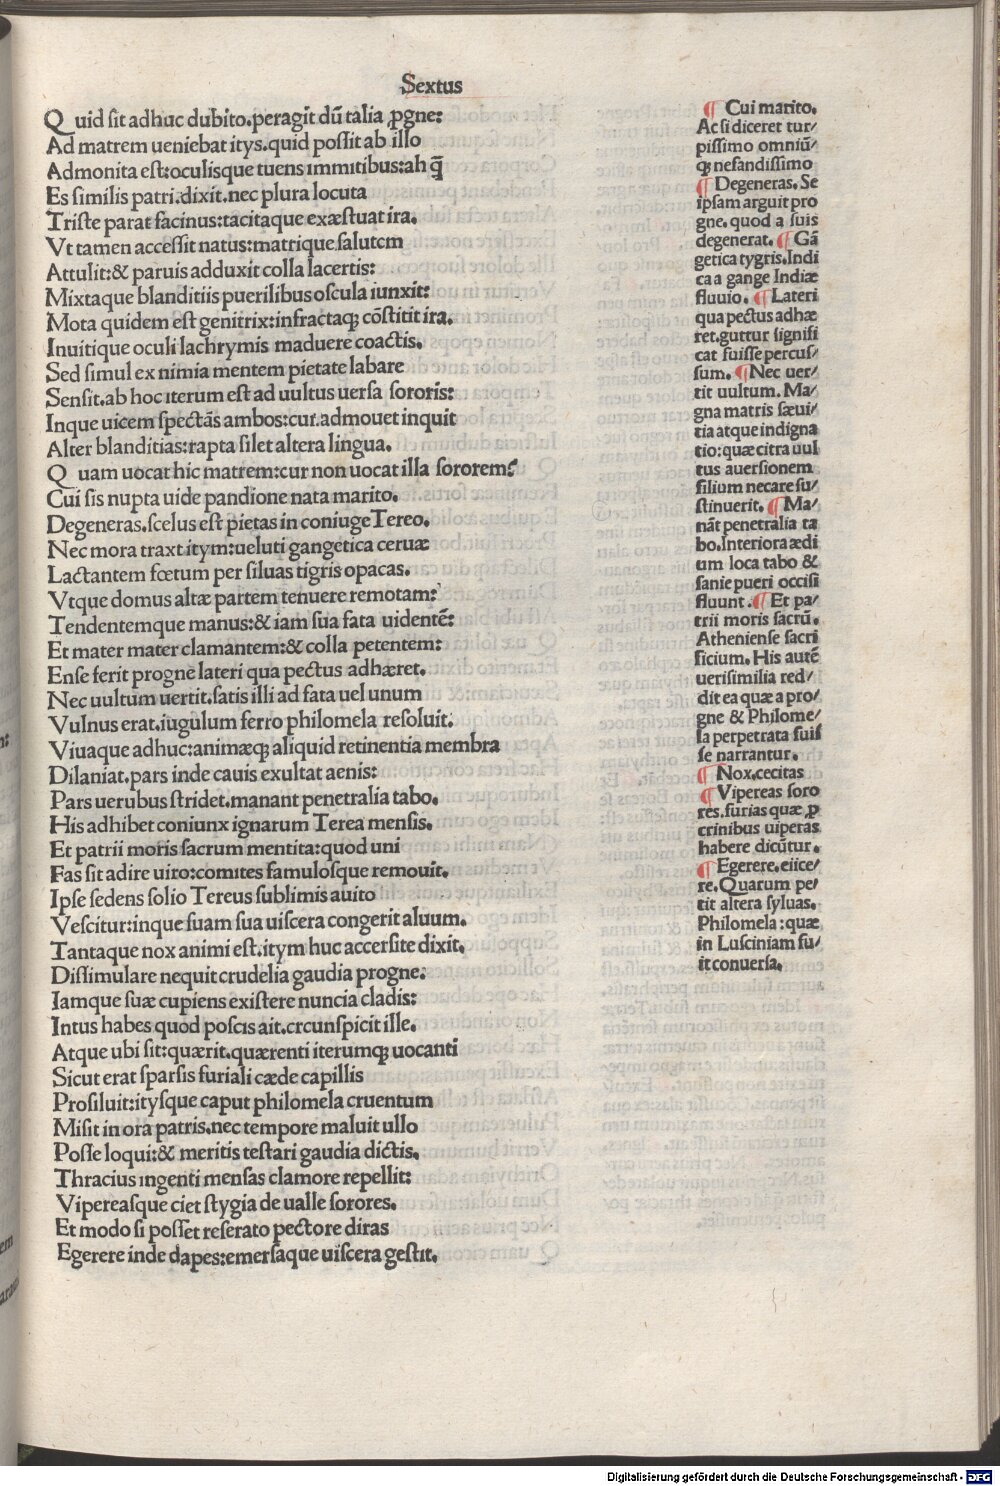 Sextus
Q uid sit adhuc dubito.peragit dũ talia ꝓgne:
Ad matrem ueniebat itys.quid possit ab illo
Admonita est:oculisque tuens immitibus:ah q̃
Es similis patri.dixit.nec plura locuta
Triste parat facinus:tacitaque exæstuat ira.
Vt tamen accessit natus:matrique salutem
Attulit:& paruis adduxit colla lacertis:
Mixtaque blanditiis puerilibus oscula iunxit:
Mota quidem est genitrix:infractaqꝫ cõstitit ira.
Inuitique oculi lachrymis maduere coactis.
Sed simul ex nimia mentem pietate labare
Sensit.ab hoc iterum est ad uultus uersa sororis:
Inque uicem spectãs ambos:cur.admouet inquit
Alter blanditias:rapta silet altera lingua.
Q uam uocat hic matrem:cur non uocat illa sororem?
Cui sis nupta uide pandione nata marito.
Degeneras.scelus est pietas in coniuge Tereo.
Nec mora traxt itym:ueluti gangetica ceruæ
Lactantem fœtum per siluas tigris opacas.
Vtque domus altæ partem tenuere remotam:
Tendentemque manus:& iam sua fata uidentẽ:
Et mater mater clamantem:& colla petentem:
Ense ferit progne lateri qua pectus adhæret.
Nec uultum uertit.satis illi ad fata uel unum
Vulnus erat.iugulum ferro philomela resoluit:
Viuaque adhuc:animæqꝫ aliquid retinentia membra
Dilaniat.pars inde cauis exultat aenis:
Pars uerubus stridet.manant penetralia tabo.
His adhibet coniunx ignarum Terea mensis.
Et patrii moris sacrum mentita:quod uni
Fas sit adire uiro:comites famulosque remouit.
Ipse sedens solio Tereus sublimis auito
Vescitur:inque suam sua uiscera congerit aluum.
Tantaque nox animi est.itym huc accersite dixit.
Dissimulare nequit crudelia gaudia progne:
Iamque suæ cupiens existere nuncia cladis:
Intus habes quod poscis ait.crcunspicit ille.
Atque ubi sit:quærit.quærenti iterumqꝫ uocanti
Sicut erat sparsis furiali cæde capillis
Prosiluit:itysque caput philomela cruentum
Misit in ora patris.nec tempore maluit ullo
Posse loqui:& meritis testari gaudia dictis.
Thracius ingenti mensas clamore repellit:
Vipereasque ciet stygia de ualle sorores.
Et modo si posset reserato pectore diras
Egerere inde dapes:emersaque uiscera gestit.
¶ Cui marito.
Ac si diceret tur/
pissimo omniũ/
qꝫ nefandissimo
¶ Degeneras. Se
ipsam arguit pro
gne. quod a suis
degenerat. ¶ Gã
getica tygris. Indi
ca a gange Indiæ
fluuio. ¶ Lateri
qua pectus adhæ
ret.guttur signifi
cat fuisse percus/
sum. ¶ Nec uer/
tit uultum. Ma/
gna matris sæui/
tia atque indigna
tio:quæ citra uul
tus auersionem
filium necare su/
stinuerit. ¶ Ma/
nãt penetralia ta
bo.Interiora ædi
um loca tabo &
sanie pueri occisi
fluunt. ¶ Et pa/
trii moris sacrũ.
Atheniense sacri
ficium. His autẽ
uerisimilia red/
dit ea quæ a pro/
gne & Philome/
la perpetrata fuis
se narrantur.
¶ Nox.cecitas
¶ Vipereas soro
res.furias quæ ꝓ
crinibus uiperas
habere dicũtur.
¶ Egerere.eiice/
re. Quarum pe/
tit altera syluas.
Philomela:quæ
in Lusciniam fu/
it conuersa.
Digitalisierung gefördert durch die Deutsche Forschungsgemeinschaft - DFG